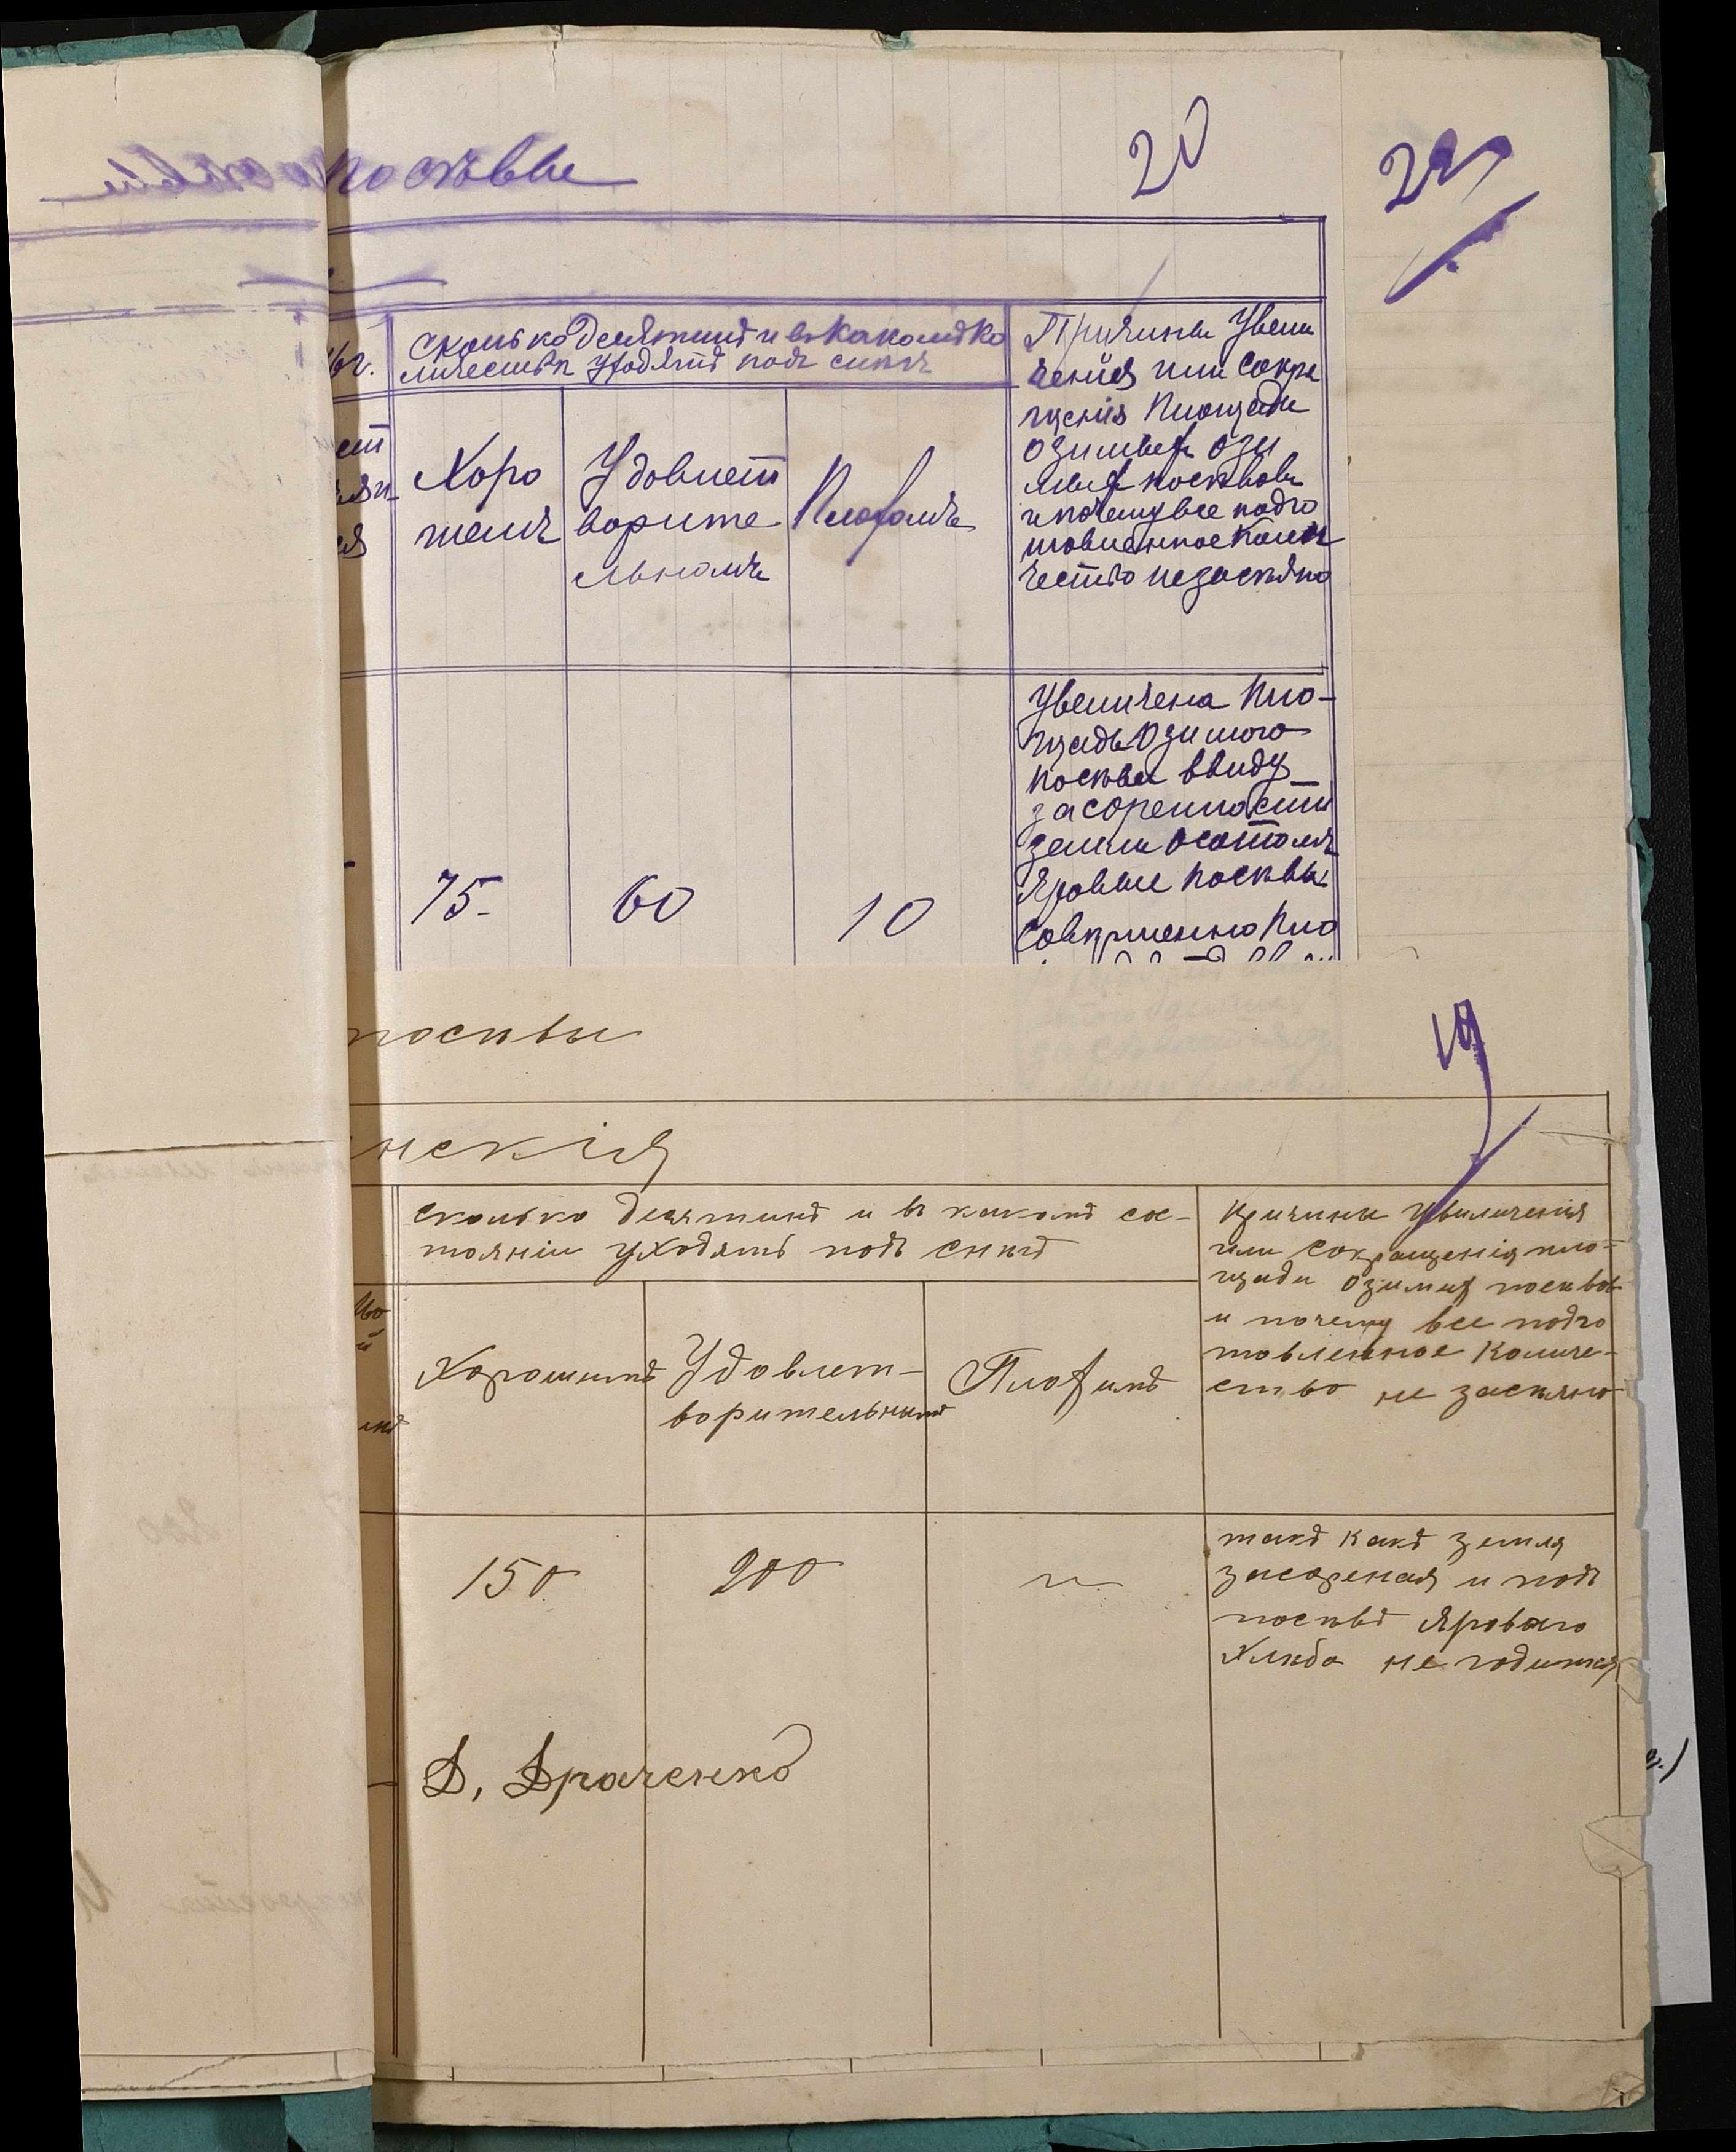 посѣвы
20
сколько десятинъ и въ какомъ ко
личествѣ уходятъ подъ снѣгъ
Причины Увели
ченія или сокра
щенія площади
озимых ози
мых посѣвовъ
и почему все подго
товленное коли
чество незасѣяно
Хоро
шемъ
Удовлет
ворите
льномъ
Плохомъ
75-
60
10
Увеличена пло-
щадь озимого
посѣва ввиду
засоренности
земли осотомъ
Яровые посѣвы
Совершенно пло
посѣвы
19
нскія
сколько десятинъ и въ какомъ сос-
тояніи уходятъ подъ снѣгъ
Причины увеличенія
или сокращенія пло-
щади озимых посѣвовъ
и почему все подго
товленное количе-
ство не засѣяно
Хорошимъ
Удовлет-
ворительнымъ
Плохимъ
150
200
такъ какъ земля
засореная и подъ
посѣвъ яроваго
хлѣба не годится
Д. Драченко